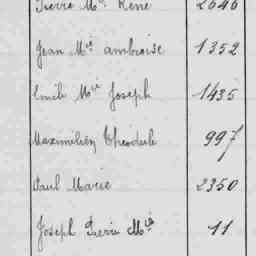 Pierre Mie René 2646
Jean Mie ambroise 1352
Emile Mie Joseph 1435
Maximilien Théodule 997
Paul Marie 2350
Joseph Pierre Mie 11